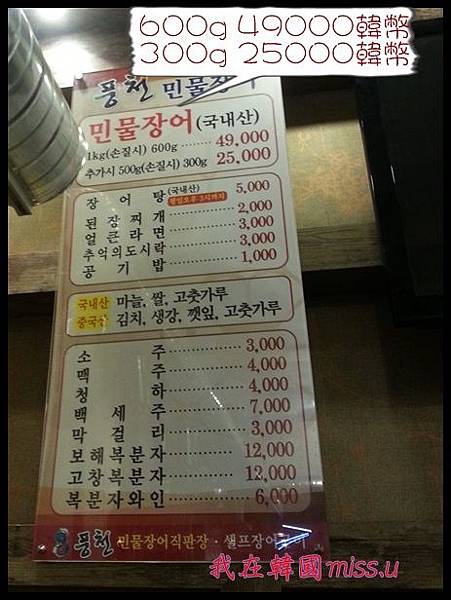 600g 49000韓幣
300g 25000韓幣
풍천 민물장어
민물장어(국내산)
1kg(손질시) 600g 49,000
추가시 500g(손질시) 300g 25,000
장어탕(국내산) 5,000
평일오후 3시까지
된장찌개 2,000
얼큰라면 3,000
추억의도시락 3,000
공기밥 1,000
국내산 마늘, 쌀, 고춧가루
중국산 김치, 생강, 깻잎, 고춧가루
소주 3,000
맥주 4,000
청하 4,000
백세주 7,000
막걸리 3,000
보해복분자 12,000
고창복분자 12,000
복분자와인 6,000
풍천 민물장어직판장 · 셀프장어구이
我在韓國miss.u